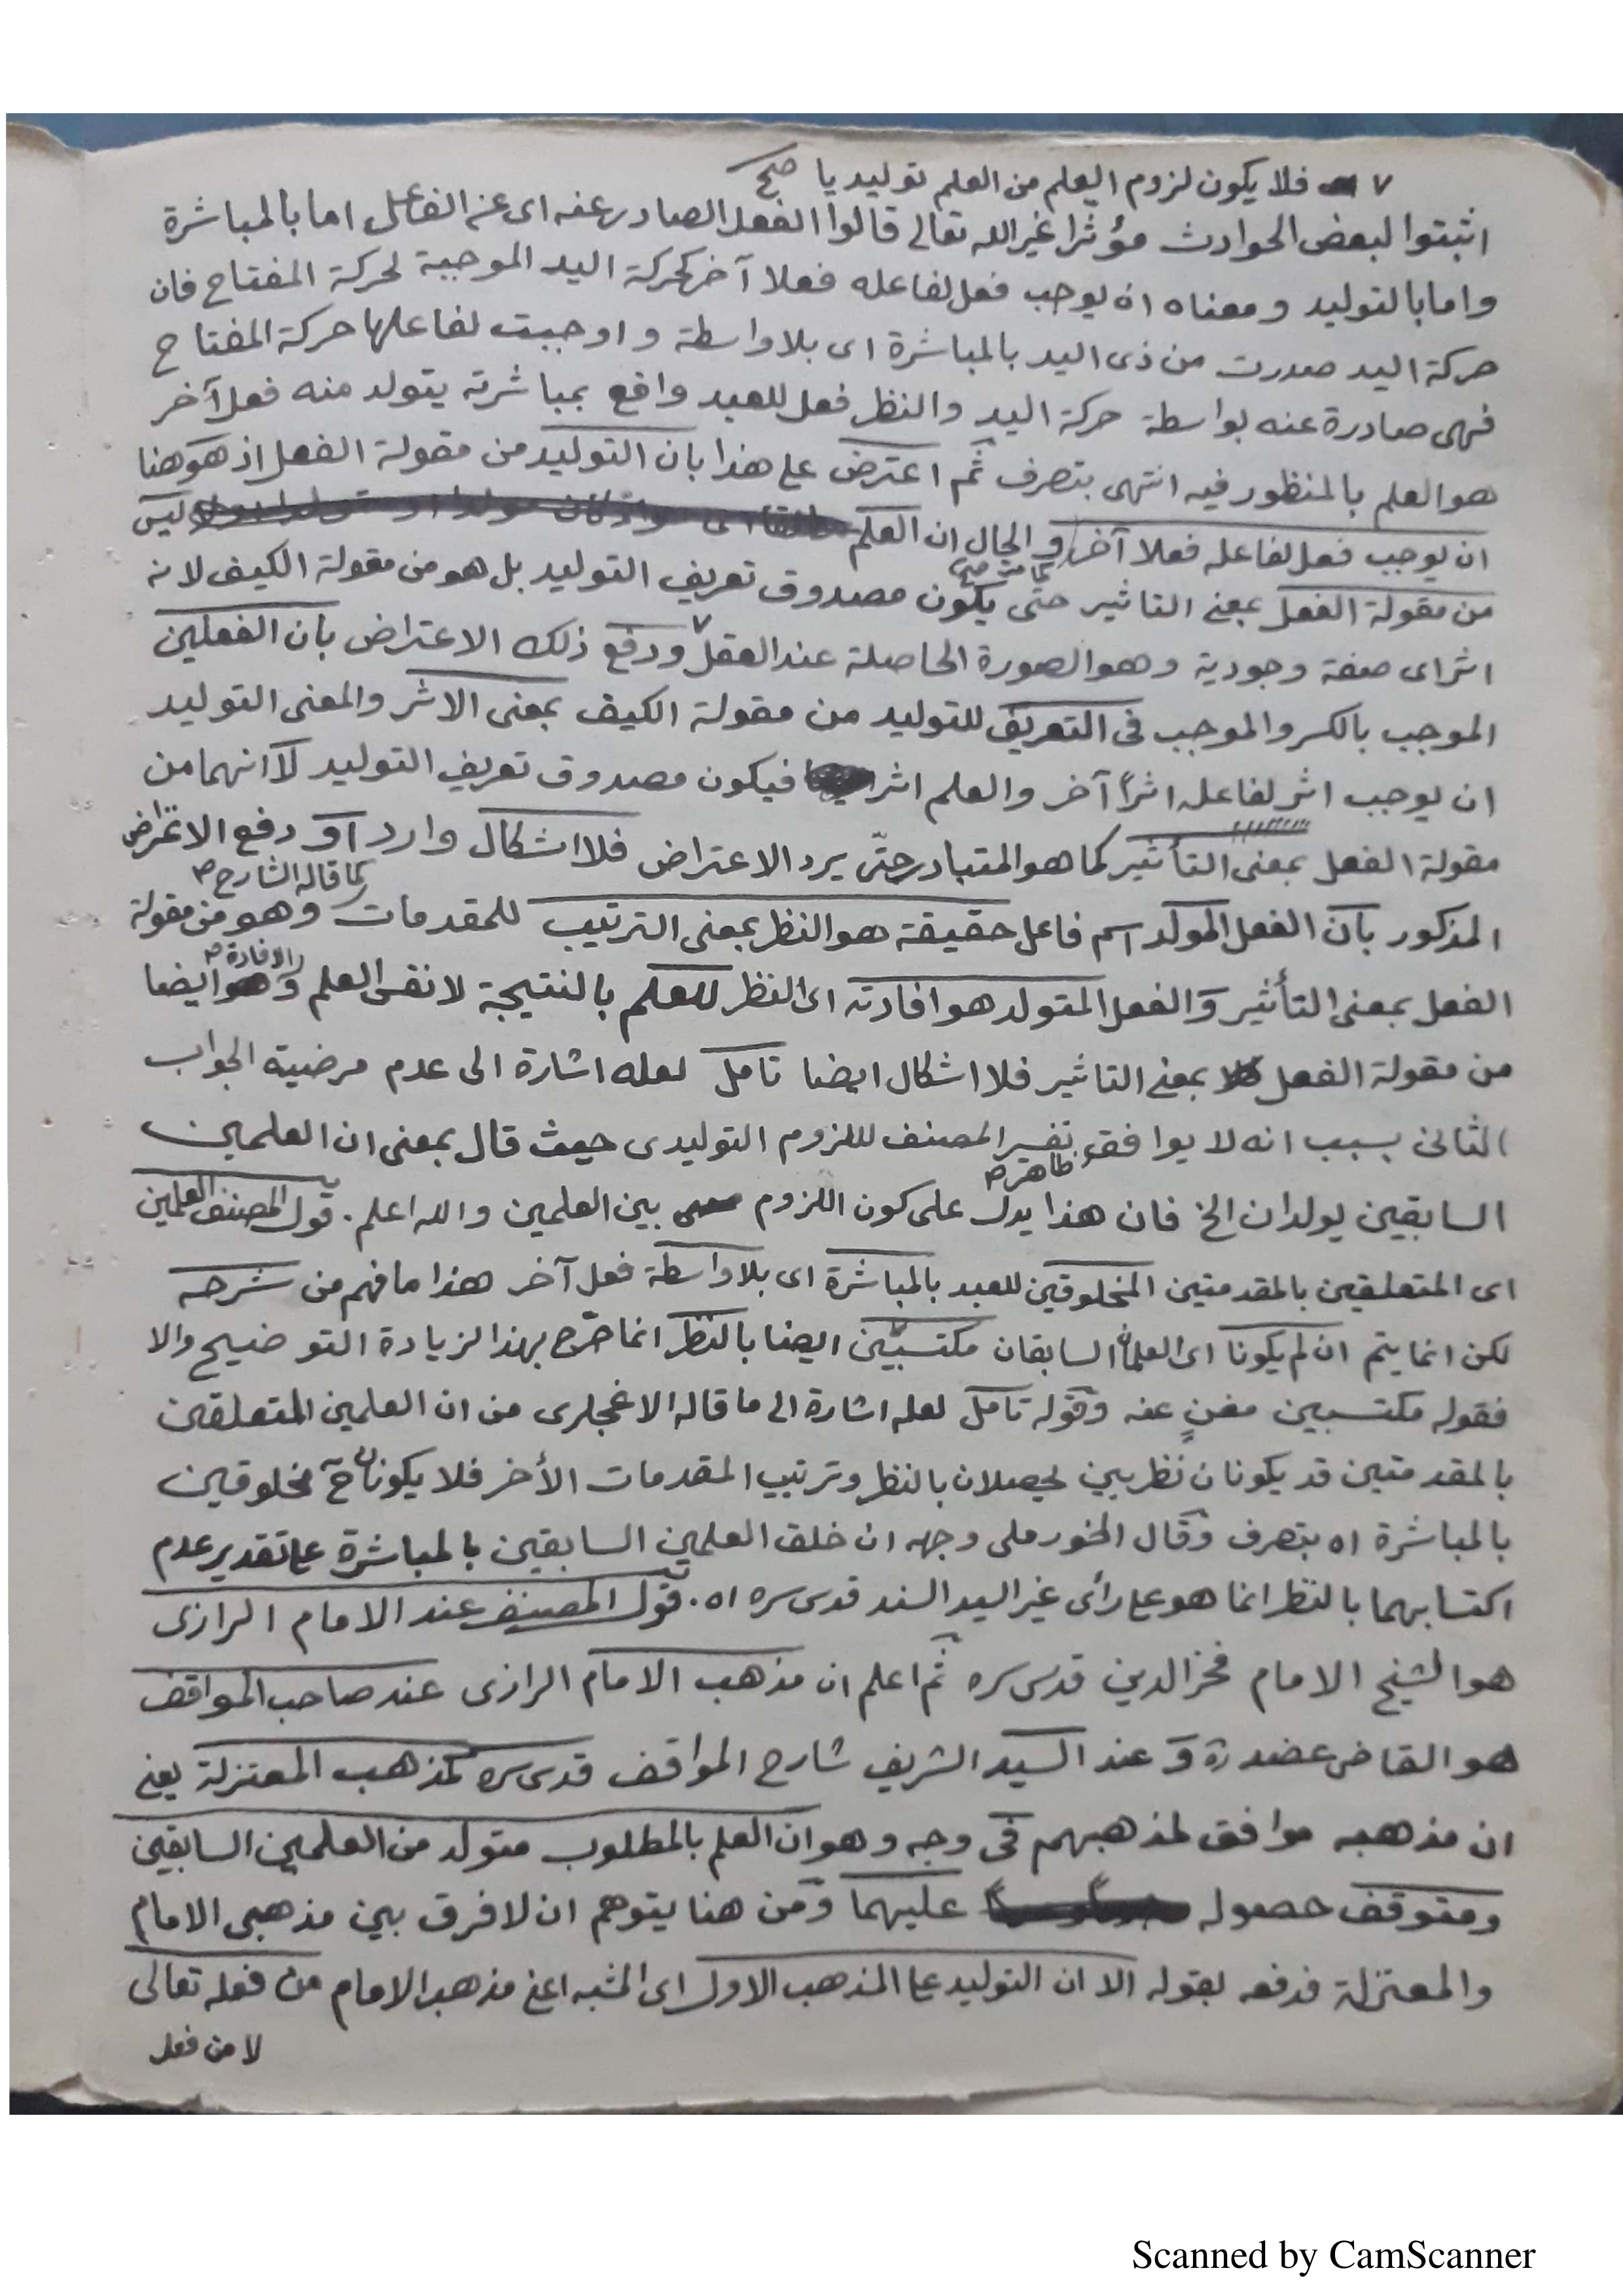 ٧ فلا يكون لزوم العلم من العلم توليديا صح
اثبتوا لبعض الحوادث مؤثرا غير الله تعالى قالوا الفعل الصادر عنه اى عن الفاعل اما بالمباشرة
واما بالتوليد ومعناه ان يوجب فعل لفاعله فعلا آخر كحركة اليد الموجبة لحركة المفتاح فان
حركة اليد صدرت من ذى اليد بالمباشرة اى بلا واسطة و اوجبت لفاعلها حركة المفتاح
فهى صادرة عنه بواسطة حركة اليد والنظر فعل للعبد واقع بمباشرته يتولد منه فعل آخر
هو العلم بالمنظور فيه انتهى بتصرف ثم اعترض على هذا بان التوليد من مقولة الفعل اذ هو هنا
ان يوجب فعل لفاعله فعلا آخر و الحال ان العلم ليس
من مقولة الفعل بمعنى التاثير حتى يكون مصدوق تعريف التوليد بل هو من مقولة الكيف لانه
اثر اى صفة وجودية وهو الصورة الحاصلة عند العقل ٧ ودفع ذلك الاعتراض بان الفعلين
الموجب بالكسر والموجب فى التعريف للتوليد من مقولة الكيف بمعنى الاثر والمعنى التوليد
ان يوجب اثر لفاعله اثراً آخر والعلم اثر فيكون مصدوق تعريف التوليد لا انهما من
مقولة الفعل بمعنى التأثير كما هو المتبادر حتّى يرد الاعتراض فلا اشكال وارد او دفع الاعتراض
كما قاله الشارح
المذكور بان الفعل المولد اسم فاعل حقيقة هو النظر بمعنى الترتيب للمقدمات وهو من مقولة
الافادة
الفعل بمعنى التأثير والفعل المتولد هو افادته اى النظر للعلم بالنتيجة لا نفس العلم و ايضا
من مقولة الفعل بمعنى التاثير فلا اشكال ايضا تامل لعله اشارة الى عدم مرضية الجواب
الثانى بسبب انه لا يوافق تفسير المصنف للزوم التوليدى حيث قال بمعنى ان العلمين
ظاهر
السابقين يولدان الخ فان هذا يدل على كون اللزوم بين العلمين والله اعلم . قول المصنف العلمين
اى المتعلقين بالمقدمتين المخلوقين للعبد بالمباشرة اى بلا واسطة فعل آخر هذا ما فهم من شرحه
لكن انما يتم ان لم يكونا اى العلمان السابقان مكتسبين ايضا بالنظر انما صرّح بهذا لزيادة التوضيح والا
فقوله مكتسبين مغنٍ عنه وقوله تامل لعله اشارة الى ما قاله الاغجلرى من ان العلمين المتعلقين
بالمقدمتين قد يكونان نظريين يحصلان بالنظر وترتيب المقدمات الأخر فلا يكونان ح مخلوقين
بالمباشرة اه بتصرف وقال الخورملى وجهه ان خلق العلمين السابقين بالمباشرة على تقدير عدم
اكتسابهما بالنظر انما هو على رأى غير السيد السند قدس سره اه . قول المصنف عند الامام الرازى
هو الشيخ الامام فخر الدين قدس سره ثم اعلم ان مذهب الامام الرازى عند صاحب المواقف
هو القاضى عضد و عند السيد الشريف شارح المواقف قدس سره كمذهب المعتزلة يعنى
ان مذهبه موافق لمذهبهم فى وجه وهو ان العلم بالمطلوب متولد من العلمين السابقين
ومتوقف حصوله عليهما ومن هنا يتوهم ان لا فرق بين مذهبى الامام
والمعتزلة فدفعه بقوله الا ان التوليد على المذهب الاول اى المشبه اعنى مذهب الامام من فعله تعالى
لا من فعل
Scanned by CamScanner